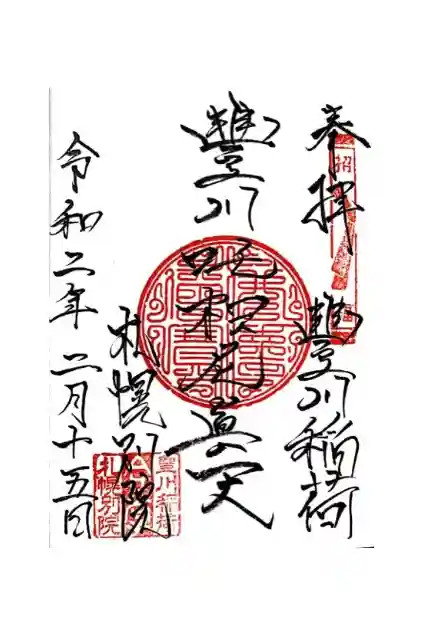 奉拝
豊川稲荷
豊川吒枳尼真天
札幌別院
令和二年二月十五日
招
豊川稲荷
札幌別院